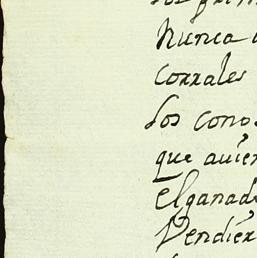 Nunca
corrales
los cono
que auien
el ganad
Vendier